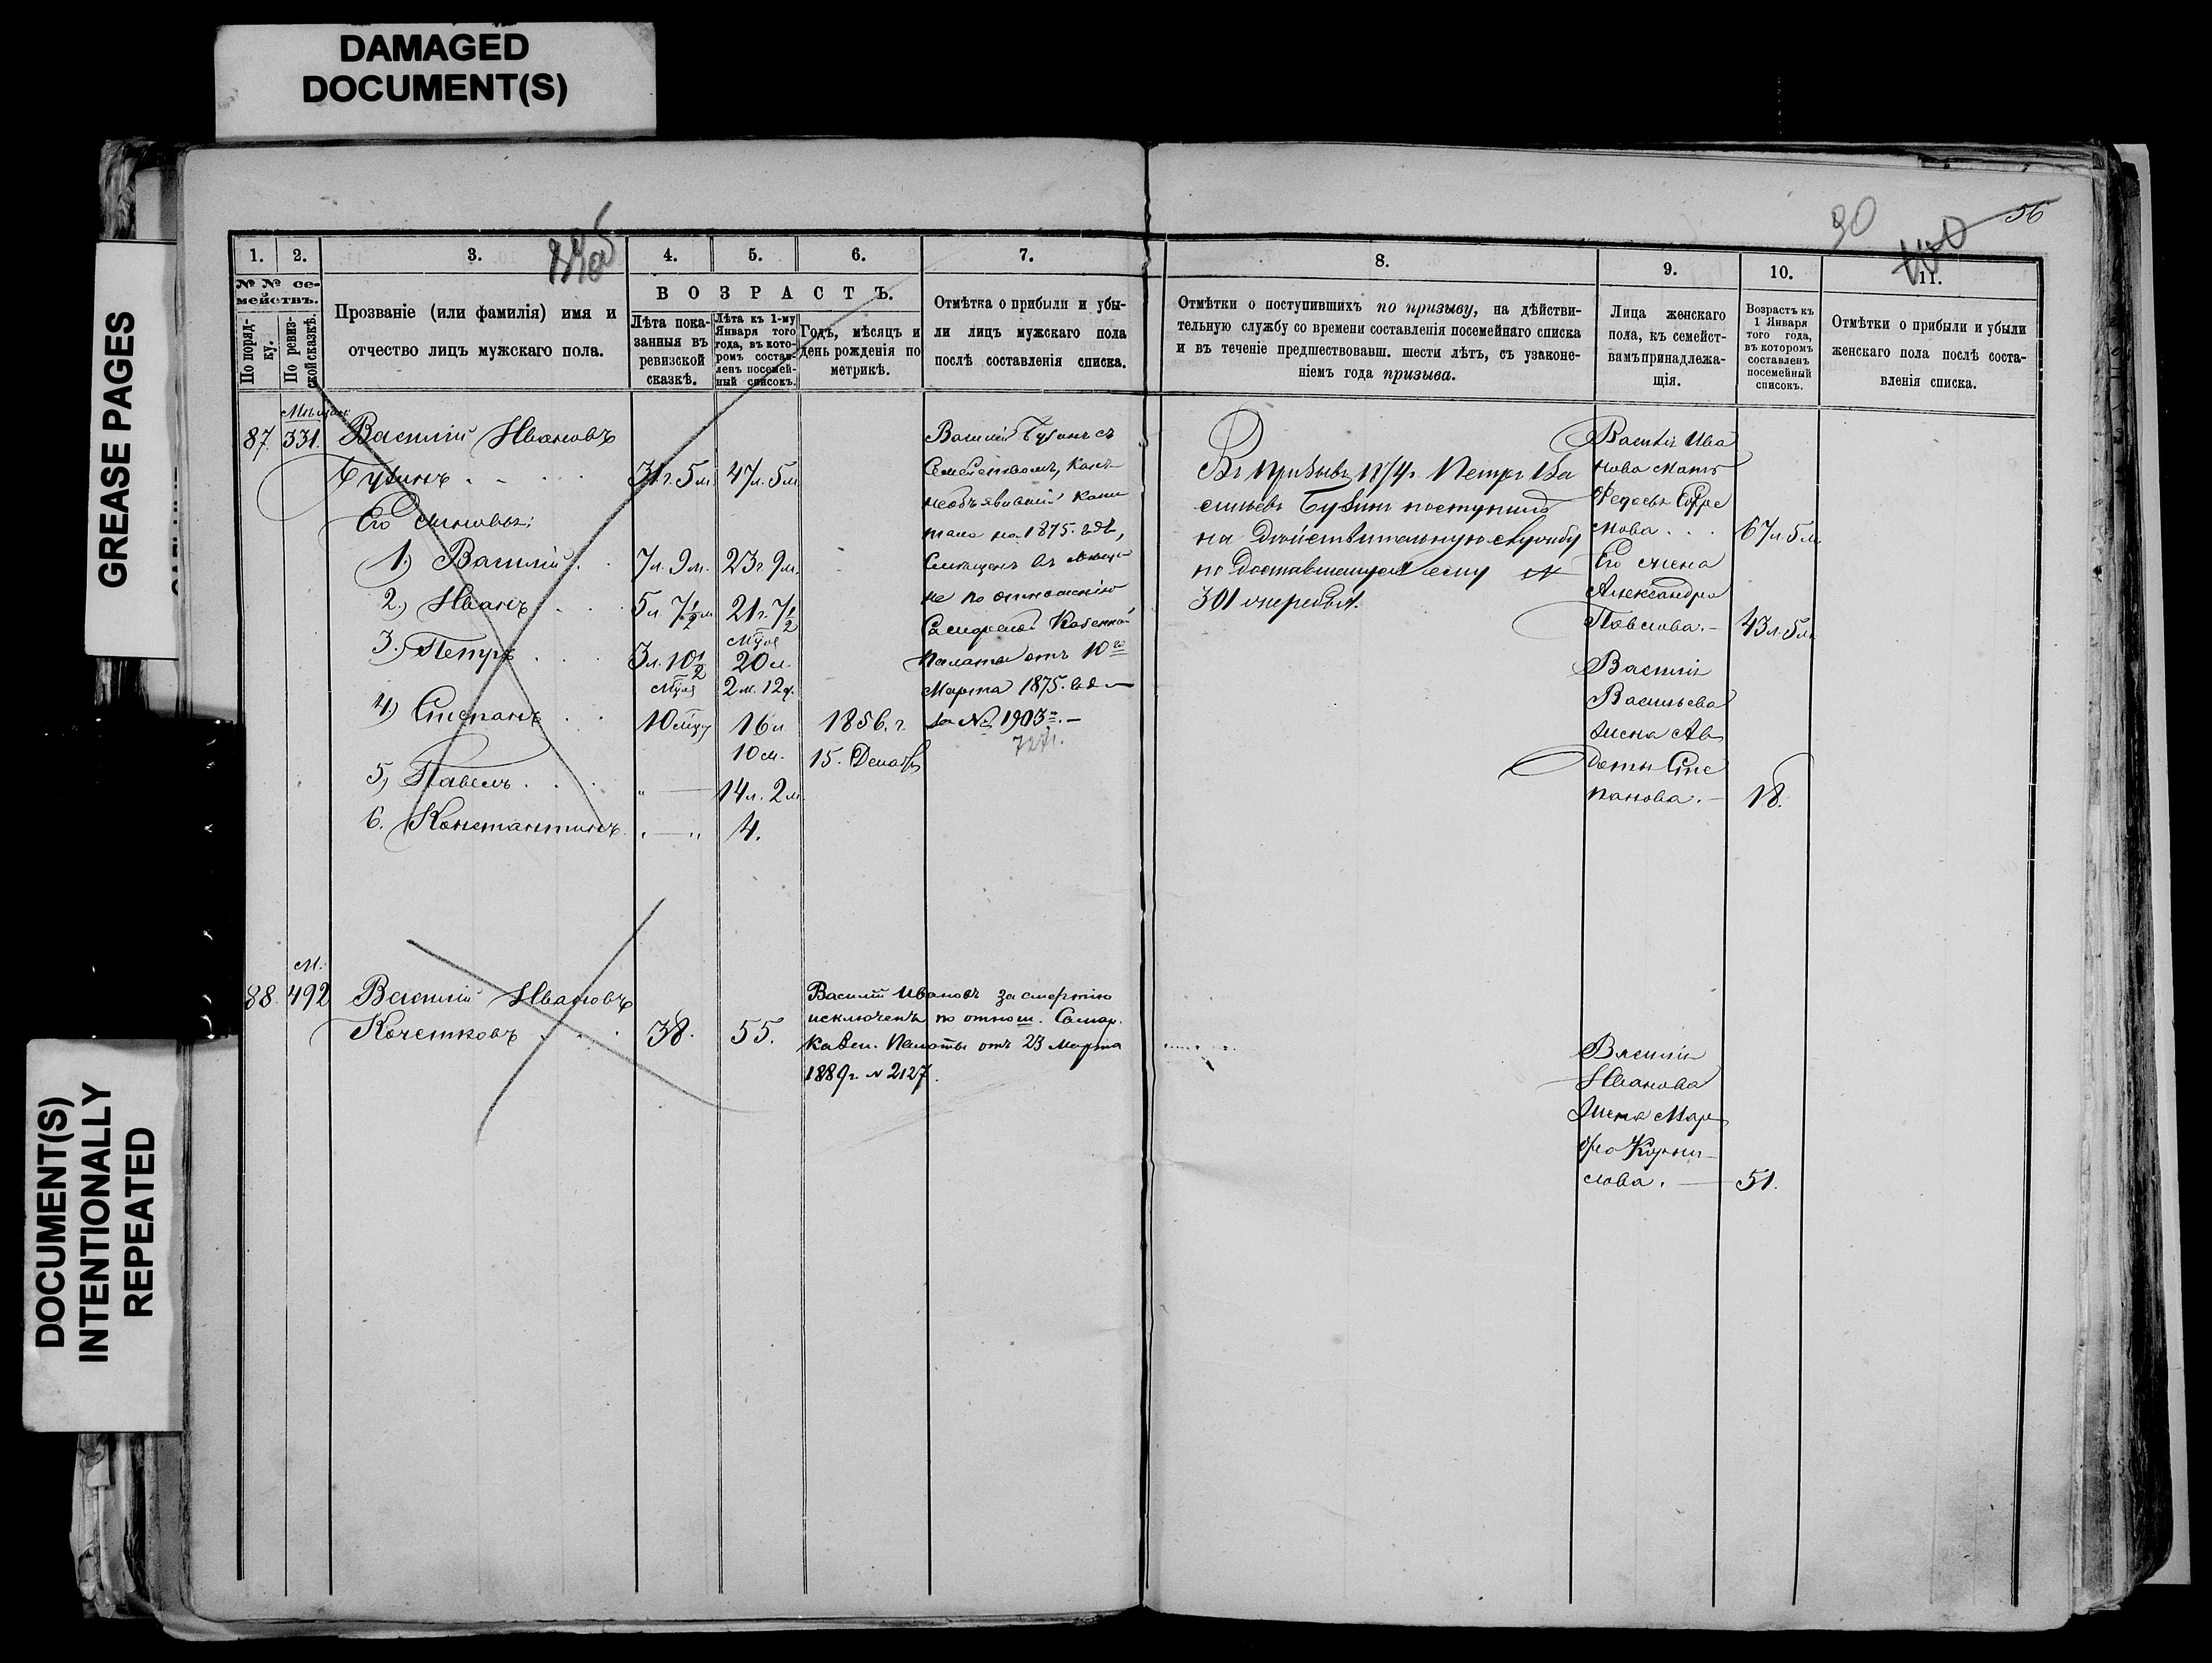 DAMAGED
DOCUMENT(S)
GREASE PAGES
DOCUMENT(S)
INTENTIONALLY
REPEATED
90
56
1.
2.
3.
4.
5.
6.
7.
8.
9.
10.
11.
№ № се-
мействъ.
По поряд-
ку.
По ревиз-
ской сказкѣ.
Прозваніе (или фамилія) имя и
отчество лицъ мужскаго пола.
ВОЗРАСТЪ.
Лѣта пока-
занныя въ
ревизской
сказкѣ.
Лѣта къ 1-му
Января того
года, въ кото-
ромъ состав-
ленъ посемей-
ный списокъ.
Годъ, мѣсяцъ и
день рожденія по
метрикѣ.
Отмѣтка о прибыли и убы-
ли лицъ мужскаго пола
послѣ составленія списка.
Отмѣтки о поступившихъ по призыву, на дѣйстви-
тельную службу со времени составленія посемейнаго списка
и въ теченіе предшествовавш. шести лѣтъ, съ узаконе-
ніемъ года призыва.
Лица женскаго
пола, къ семейст-
вамъ принадлежа-
щія.
Возрастъ къ
1 Января
того года,
въ которомъ
составленъ
посемейный
списокъ.
Отмѣтки о прибыли и убыли
женскаго пола послѣ соста-
вленія списка.
87. 331. Василій Ивановъ
31 г. 5 м. 47 л. 5 м.
Его сыновья:
1.) Василій. 7 л. 9 м. 23 г. 9 м.
2.) Иванъ. 5 л. 7 1/2 м. 21 г. 7 1/2
3.) Петръ. 3 л. 10 1/2 20 л.
2 м. 12 д.
4.) Степанъ. 16 л. 1856. г.
10 м. 15. Декабр
5.) Павелъ. 14 л. 2 м.
6. Константинъ. 4.
семействомъ, какъ
необъявившій капи
тала на 1875. годъ,
не по отношенію
Самарской Казенной
Палаты отъ 10го
Марта 1875. года
за № 1903м.–
Въ призывъ 1874 г. Петръ Ва
сильевъ поступилъ
на дѣйствительную службу
по доставшемуся ему №
301 жеребья.
Василія Ива
нова мать
Федосья Ефре
мова. 67 л. 5 м.
Его жена
Александра
Павлова.– 43 л. 5 м.
Василія
Васильева
жена Ав
дотья Сте
панова.– 18.
М.
88. 492 Василій Ивановъ
Кочетковъ 38. 55.
Василій Ивановъ за смертію
исключенъ по отнош. Самар.
Казен. Палаты отъ 23 Марта
1889 г. № 2127.
Василія
Иванова
жена Мар
фа Корни
лова. 51.